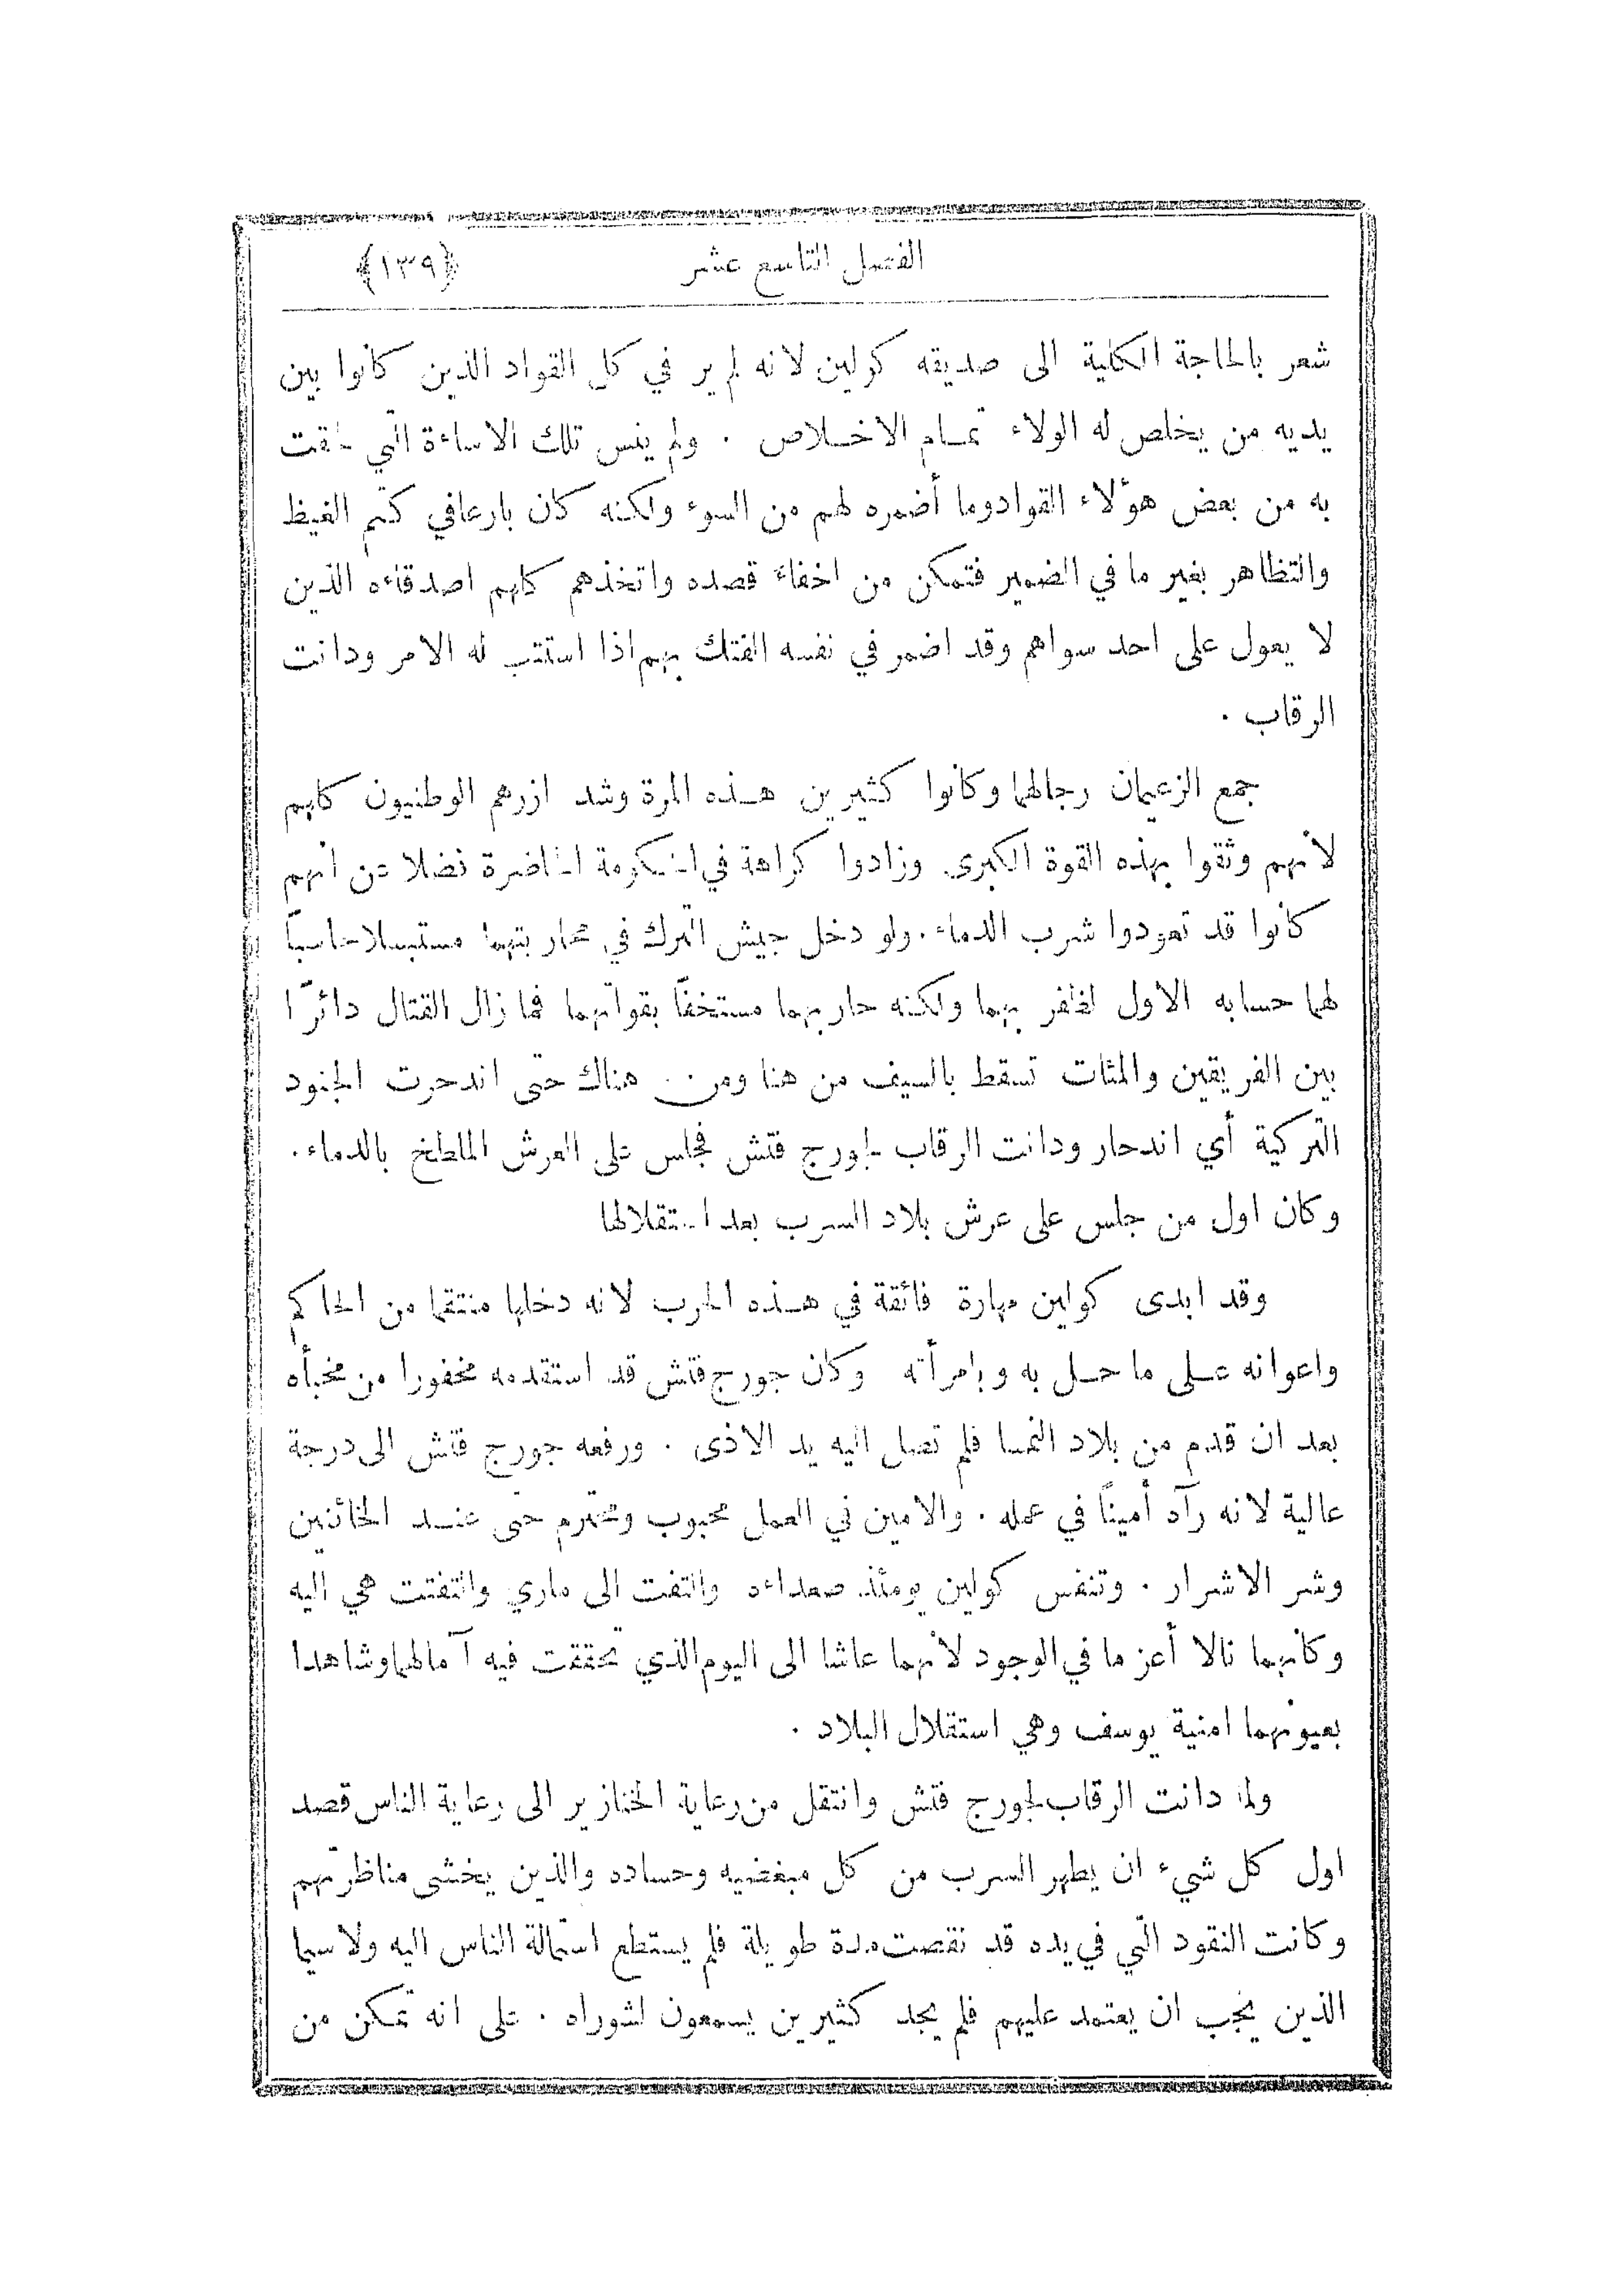 الفصل التاسع عشر ﴿١٣٩﴾
شعر بالحاجة الكلية الى صديقه كولين لانه لم ير في كل القواد الذين كانوا بين
يديه من يخلص له الولاء تمام الاخلاص . ولم ينس تلك الاساءة التي لحقت
به من بعض هؤلاء القوادوما أضمره لهم من السوء ولكنه كان بارعافي كتم الغيظ
والتظاهر بغير ما في الضمير فتمكن من اخفاء قصده واتخذهم كلهم اصدقاءه الذين
لا يعول على احد سواهم وقد اضمر في نفسه الفتك بهم اذا استتب له الامر ودانت
الرقاب .
جمع الزعيمان رجالهما وكانوا كثيرين هذه المرة وشد ازرهم الوطنيون كلهم
لأنهم وثقوا بهذه القوة الكبرى وزادوا كراهة في الحكومة الحاضرة فضلا عن انهم
كانوا قد تعودوا شرب الدماء . ولو دخل جيش الترك في محاربتهما مستبسلا حاسباً
لهما حسابه الاول لظفر بهما ولكنه حاربهما مستخفاً بقواتهما فما زال القتال دائرًا
بين الفريقين والمئات تسقط بالسيف من هنا ومن هناك حتى اندحرت الجنود
التركية أي اندحار ودانت الرقاب لجورج فتش فجلس على العرش الملطخ بالدماء .
وكان اول من جلس على عرش بلاد السرب بعد استقلالها
وقد ابدى كولين مهارة فائقة في هذه الحرب لانه دخلها منتقما من الحاكم
واعوانه على ما حل به وبامرأته وكان جورج فتش قد استقدمه مخفورا من مخبأه
بعد ان قدم من بلاد النمسا فلم تصل اليه يد الاذى . ورفعه جورج فتش الى درجة
عالية لانه رآه أميناً في عمله . والامين في العمل محبوب ومحترم حتى عند الخائنين
وشر الاشرار . وتنفس كولين يومئذ صعداءه والتفت الى ماري والتفتت هي اليه
وكأنهما نالا أعز ما في الوجود لأنهما عاشا الى اليوم الذي تحققت فيه آمالهما وشاهدا
بعيونهما امنية يوسف وهي استقلال البلاد .
ولما دانت الرقاب لجورج فتش وانتقل من رعاية الخنازير الى رعاية الناس قصد
اول كل شيء ان يطهر السرب من كل مبغضيه وحساده والذين يخشى مناظرتهم
وكانت النقود التي في يده قد نقصت مدة طويلة فلم يستطع استمالة الناس اليه ولا سيما
الذين يجب ان يعتمد عليهم فلم يجد كثيرين يسمعون لشوراه . على انه تمكن من